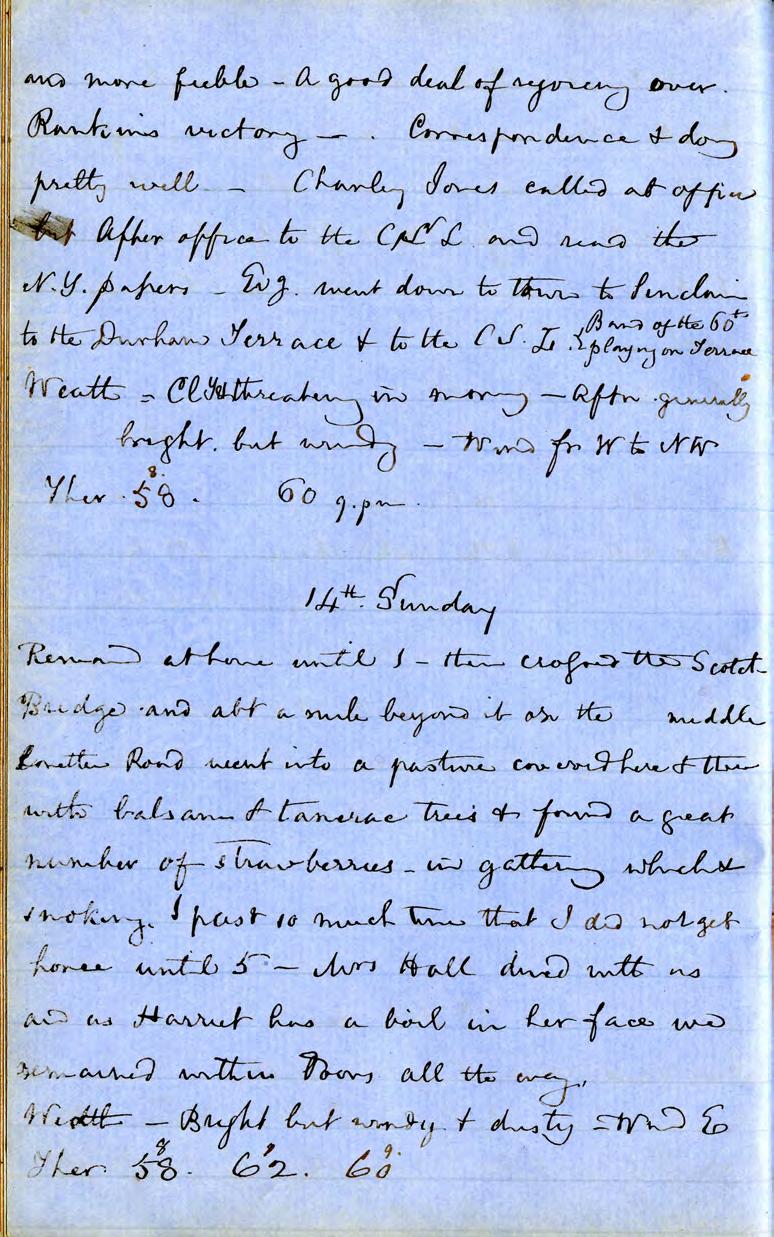 and more feeble - A good deal of rejoicing over.
Rankins victory - . Correspondence & doing
pretty well - Charley Jones called at office
but After office to the and read the
N.Y. papers - Evg. went down to town to Sinclair
to the Durham Terrace & to the Band of the 60th
playing on Terrace
Weath = threateng in morng - Aftn generally
bright. but windy - Wind fr W to NW
Ther. 58. 8. 60 9.pm.
14th. Sunday
Remand at home until 1 - then crossed the Scotch
Bridge and abt a mile beyond it on the middle
Lorette Road went into a pasture coverd here & there
with balsam & tamerac trees & found a great
number of strawberries - in gathering which &
smoking. I past so much time that I did not get
home until 5 - Mrs Hall dined with us
and as Harriet has a boil in her face we
remained within Doors all the evg,
Weath - Bright but windy & dusty - Wind E
Ther. 58. 8 62. 60 9.